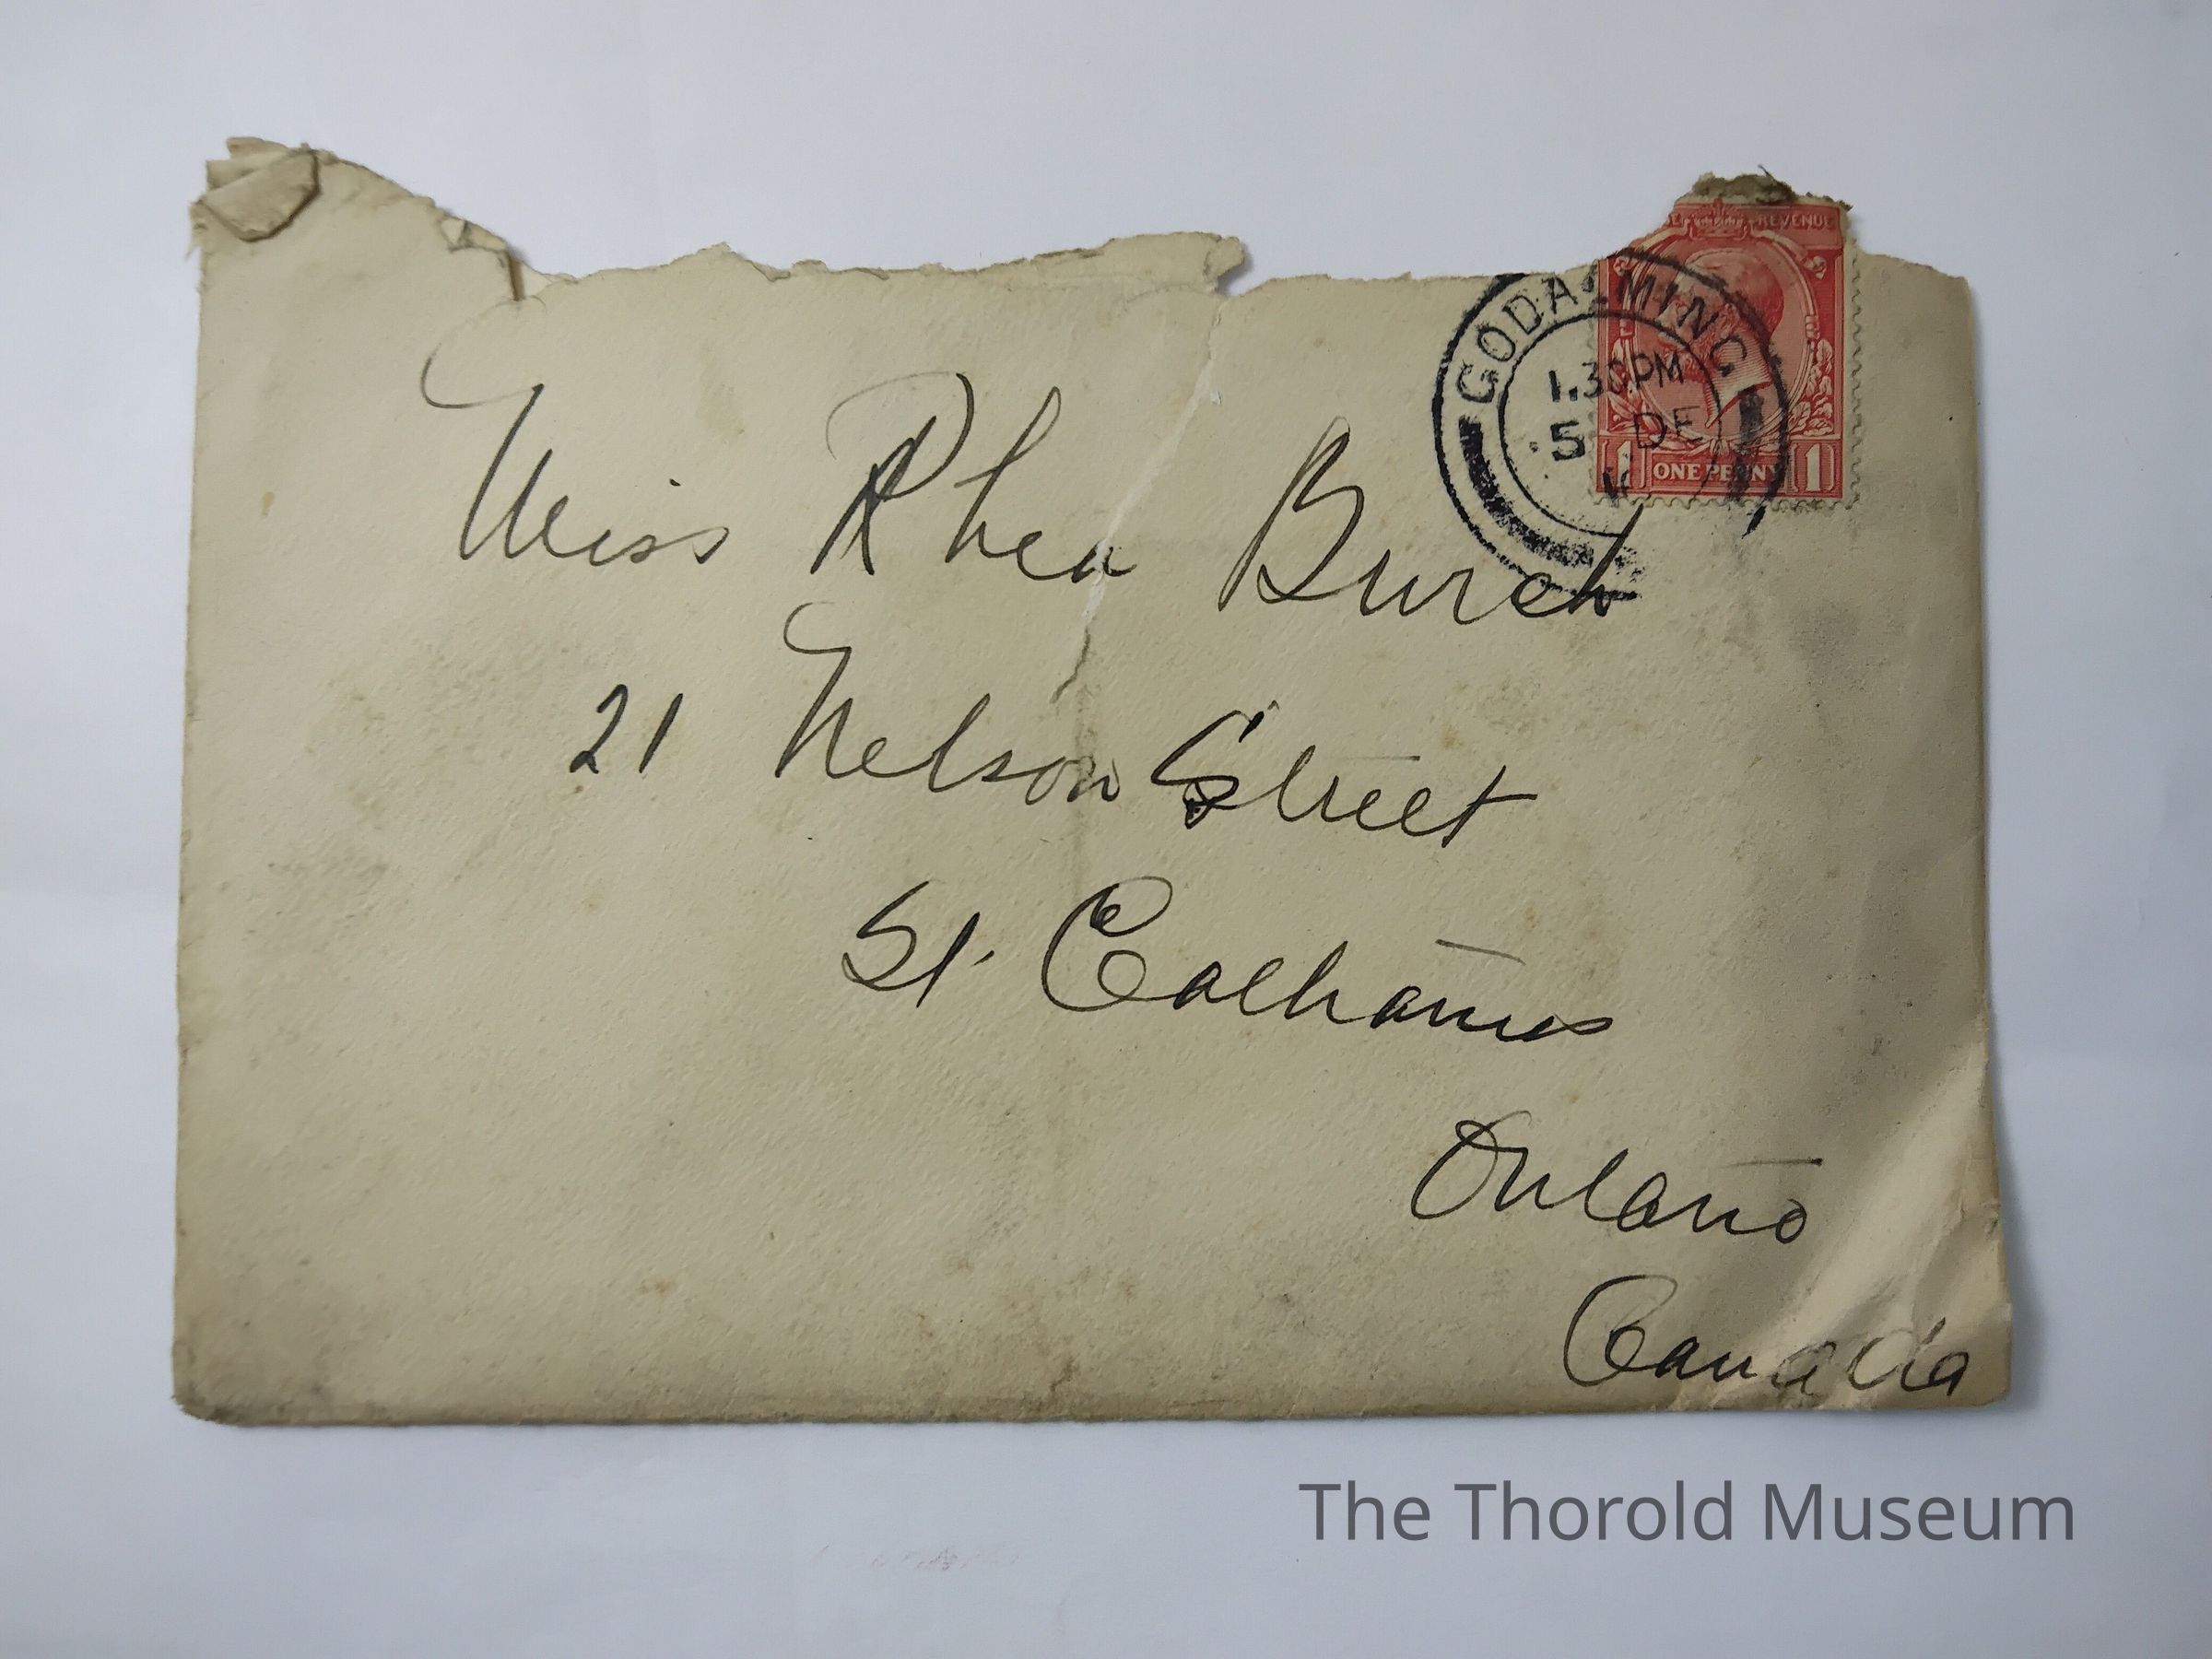 REVENUE
GODALMING
1.30PM
5 DE
1 ONE PENNY 1
Miss Rhea Burch
21 Nelson Street
St. Catharines
Ontario
Canada
The Thorold Museum